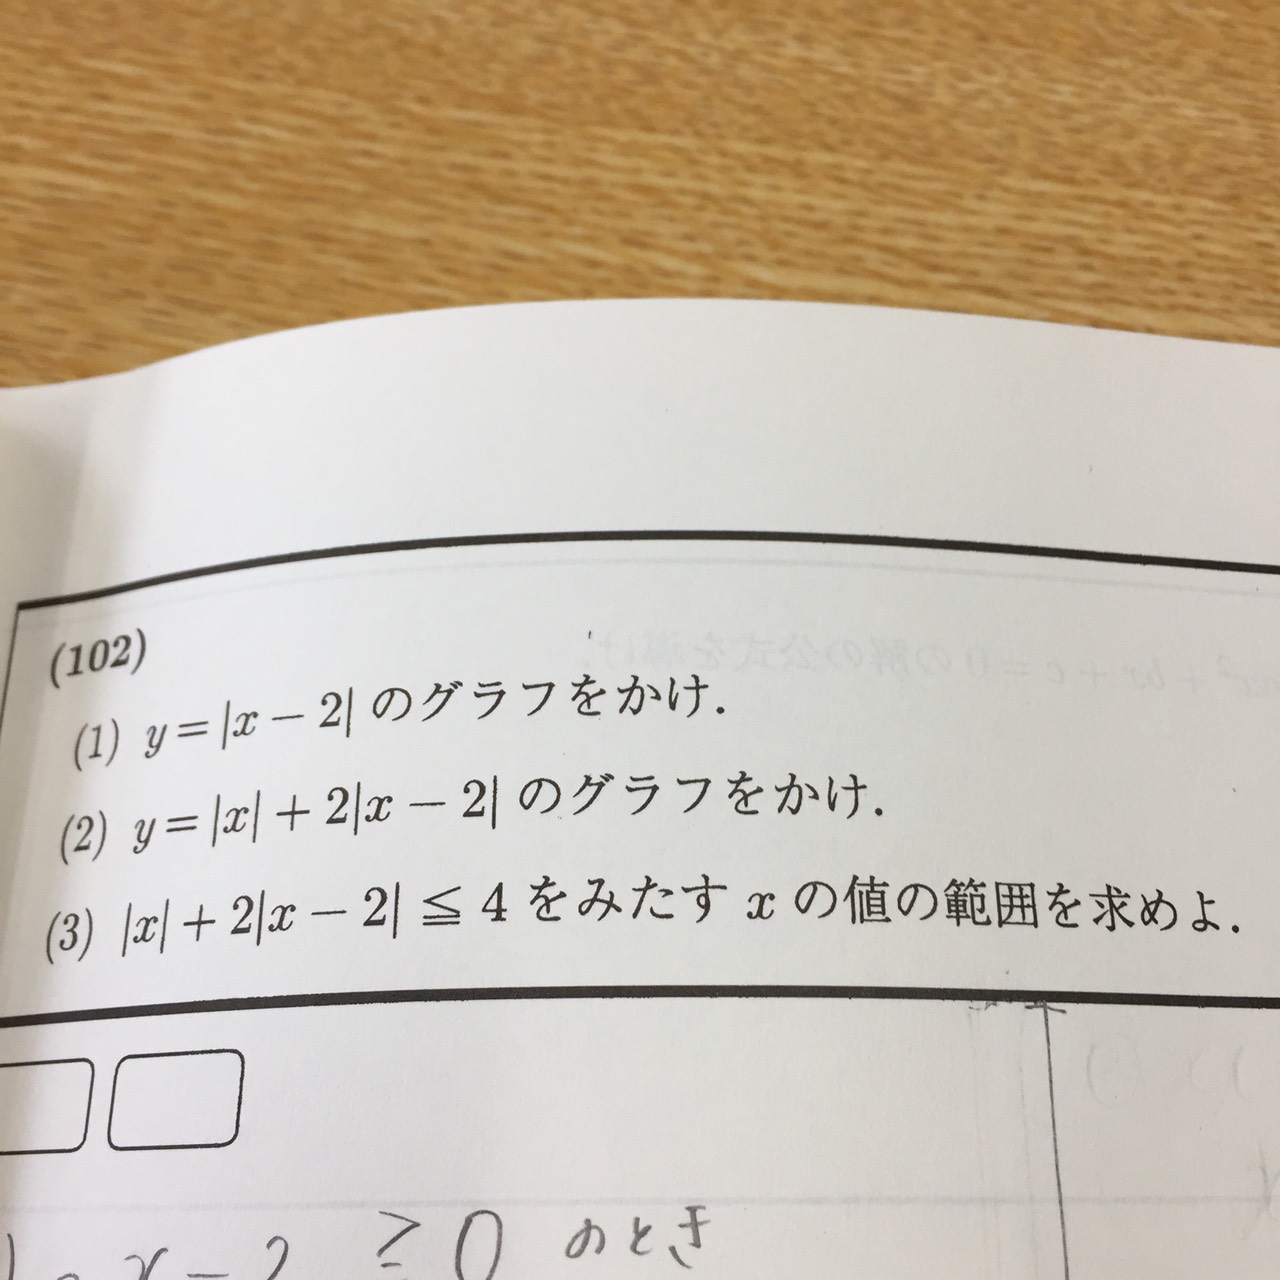 (102)
(1) y = |x − 2| のグラフをかけ.
(2) y = |x| + 2|x − 2| のグラフをかけ.
(3) |x| + 2|x − 2| ≦ 4 をみたす x の値の範囲を求めよ.
x − 2 ≥ 0 のとき